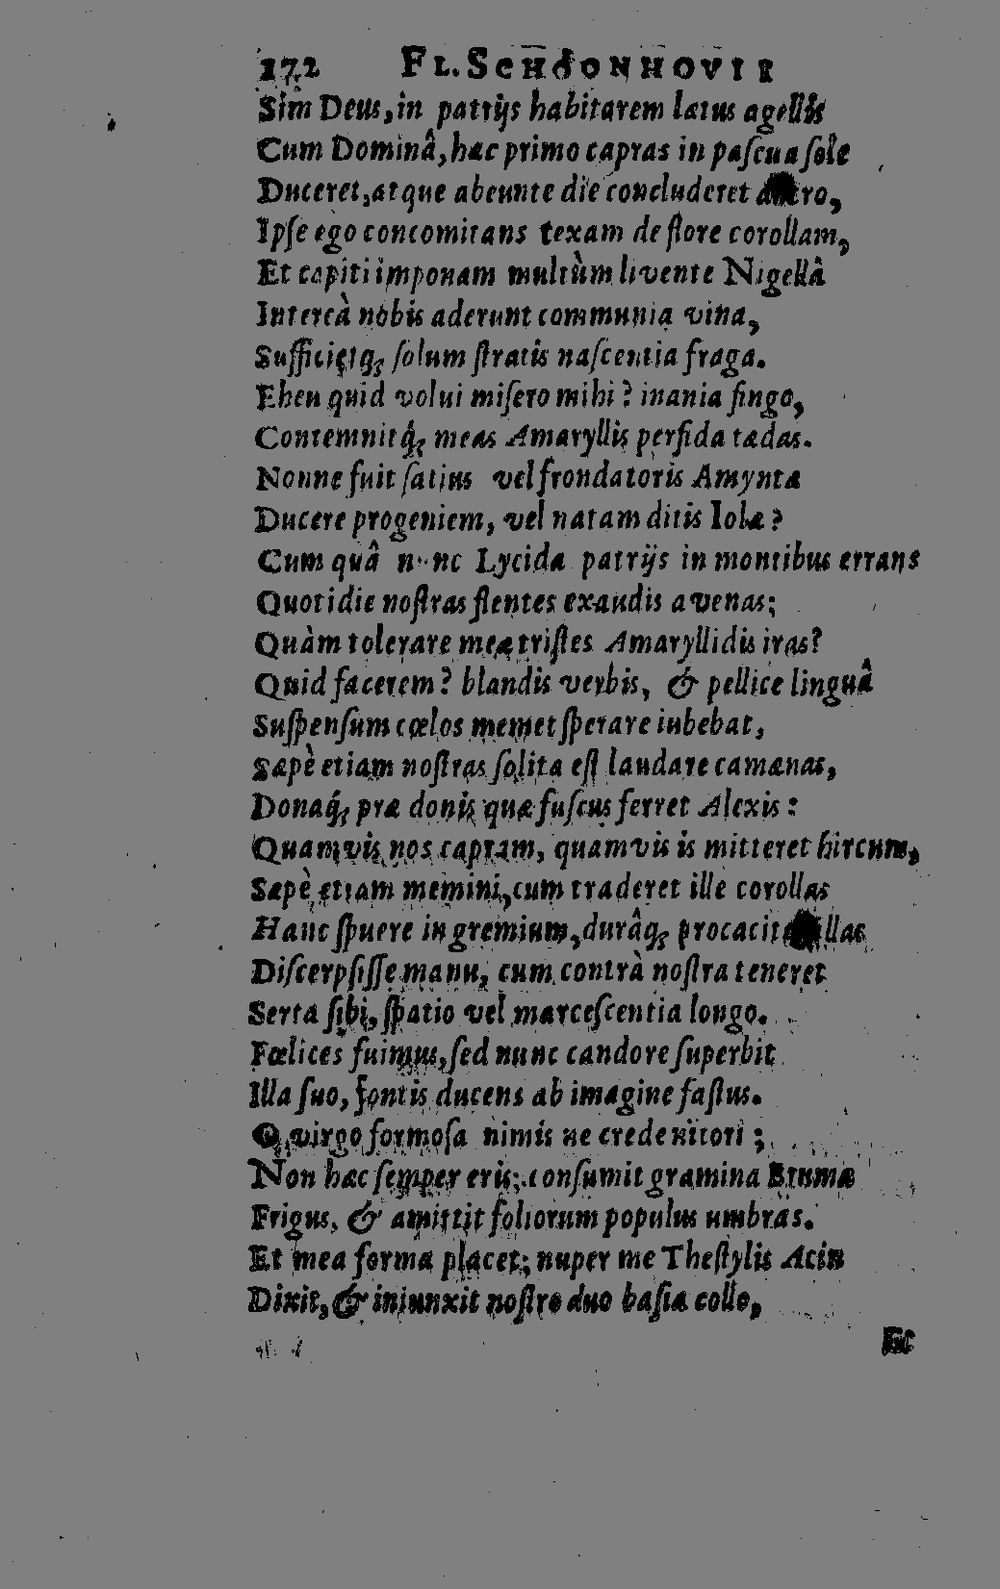 172 FL. SCHOONHOVII
Sim Deus, in patrijs habitarem lætus agellis
Cum Dominâ, hæc primo capras in pascua sole
Duceret, atque abeunte die concluderet
Ipse ego concomitans texam de flore corollam,
Et capiti imponam multùm livente Nigellâ
Intereà nobis aderunt communia vina,
Sufficietq́; solum stratis nascentia fraga.
Eheu quid volui misero mihi? inania fingo,
Contemnitq́; meas Amaryllis perfida tædas.
Nonne fuit satius vel frondatoris Amyntæ
Ducere progeniem, vel natam ditis Iolæ?
Cum quâ Lycida patrijs in montibus errans
Quotidie nostras flentes exaudis avenas;
Quàm tolerare meæ tristes Amaryllidis iras?
Quid facerem? blandis verbis, & pellice linguâ
Suspensum cœlos memet sperare iubebat,
Sæpè etiam nostras solita est laudare camænas,
Donaq́; præ donis quæ fuscus ferret Alexis:
Quamvis nos capram, quamvis is mitteret hircum,
Sæpè etiam memini, cum traderet ille corollas
Hanc spuere in gremium, durâq; procaciter
Discerpsisse manu, cum contrà nostra teneret
Serta sibi, spatio vel marcescentia longo.
Fœlices fuimus, sed nunc candore superbit
Illa suo, fontis ducens ab imagine fastus.
O virgo formosa nimis ne crede nitori;
Non hæc semper eris; consumit gramina Brumæ
Frigus, & amittit foliorum populus umbras.
Et mea forma placet; nuper me Thestylis Acin
Dixit, & iniunxit nostro duo basia collo,